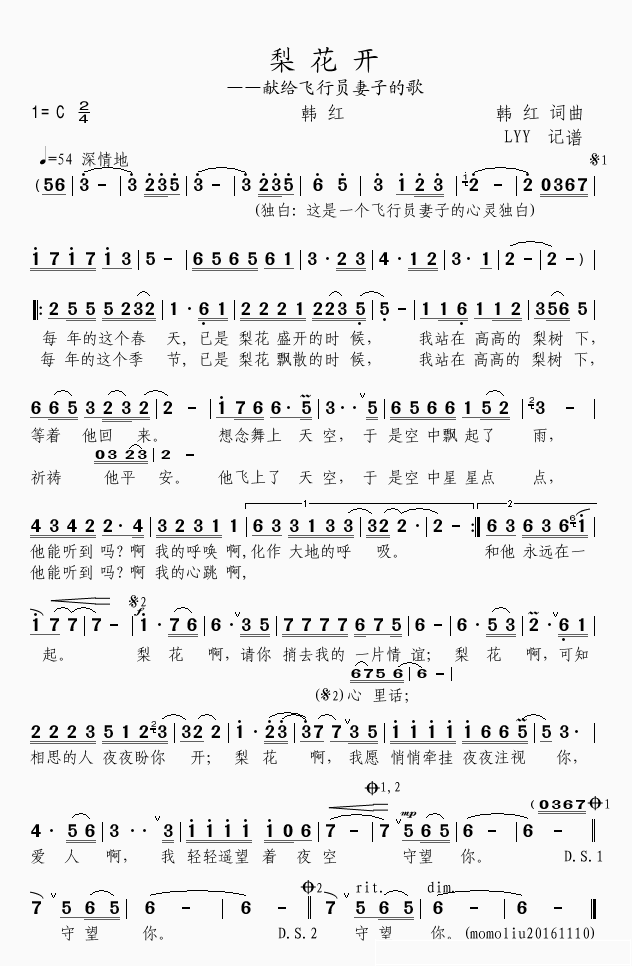 梨花开
——献给飞行员妻子的歌
1= C 2/4 韩 红 韩 红 词曲
LYY 记谱
♩=54 深情地 𝄋1
(56 | 3 – | 3 235 | 3 – | 3 235 | 6 5 | 3 123 | 2 – | 2 0367 |
(独白: 这是一个飞行员妻子的心灵独白)
1 7 1 7 1 3 | 5 – | 6 5 6 5 6 1 | 3 · 2 3 | 4 · 1 2 | 3 · 1 | 2 – | 2 – ) |
‖: 2 5 5 5 2 3 2 | 1 · 6 1 | 2 2 2 1 2 2 3 5 | 5 – | 1 1 6 1 1 2 | 3 5 6 5 |
每 年的这个春 天, 已是 梨花 盛开的时 候, 我站在 高高的 梨树 下,
每 年的这个季 节, 已是 梨花 飘散的时 候, 我站在 高高的 梨树 下,
6 6 5 3 2 3 2 | 2 – | 1 7 6 6 · 5 | 3 · · ∨ 5 | 6 5 6 6 1 5 2 | 3 – |
等着 他回 来。 想念舞上 天 空, 于 是空 中飘 起了 雨,
03 23 | 2 –
祈祷 他平 安。 他飞上了 天 空, 于 是空 中星 星点 点,
1 2
4 3 4 2 2 · 4 | 3 2 3 1 1 | 6 3 3 1 3 3 | 3 2 2 · 2 | 2 – :‖ 6 3 6 3 6 1 |
他能听到 吗? 啊 我的呼唤 啊, 化作 大地的呼 吸。 和他 永远在一
他能听到 吗? 啊 我的心跳 啊,
𝄋2
1 7 7 | 7 – | 1 · 7 6 | 6 · ∨ 3 5 | 7 7 7 7 6 7 5 | 6 · 6 | 6 · 5 3 | 2 · ∨ 6 1 |
起。 梨 花 啊, 请你 捎去我的 一片情 谊; 梨 花 啊, 可知
675 6 | 6 –
(𝄋2) 心 里话;
2 2 2 3 5 1 2 3 | 3 2 2 | 1 · 2 3 | 3 7 7 ∨ 3 5 | 1 1 1 1 1 6 6 5 | 5 3 · |
相思的人 夜夜盼你 开; 梨 花 啊, 我愿 悄悄牵挂 夜夜注视 你,
𝄌1,2
mp (0367 𝄌1
4 · 5 6 | 3 · · ∨ 3 | 1 1 1 1 1 0 6 | 7 – | 7 ∨ 5 6 5 | 6 – | 6 – ‖
爱 人 啊, 我 轻轻遥望 着 夜 空 守望 你。 D.S.1
𝄌2 rit. dim.
7 ∨ 5 6 5 | 6 – | 6 – ‖ 7 ∨ 5 6 5 | 6 – | 6 – ‖
守 望 你。 D.S.2 守 望 你。(momoliu20161110)